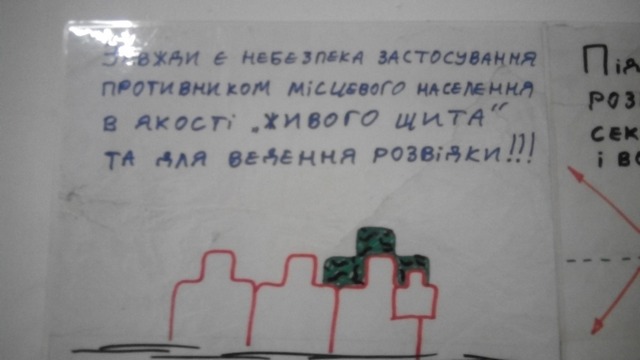 ЗАВЖДИ Є НЕБЕЗПЕКА ЗАСТОСУВАННЯ
ПРОТИВНИКОМ МІСЦЕВОГО НАСЕЛЕННЯ
В ЯКОСТІ „ЖИВОГО ЩИТА“
ТА ДЛЯ ВЕДЕННЯ РОЗВІДКИ!!!